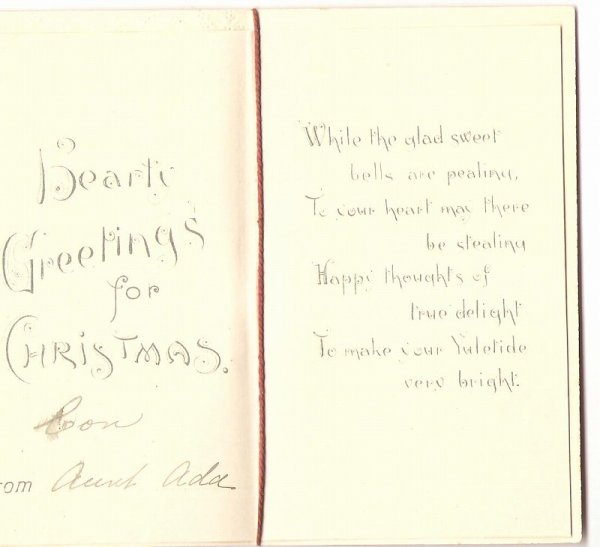 Hearty
Greetings
for
CHRISTMAS.
Con
rom Aunt Ada
While the glad sweet
bells are pealing,
To your heart may there
be stealing
Happy thoughts of
true delight
To make your Yuletide
very bright.